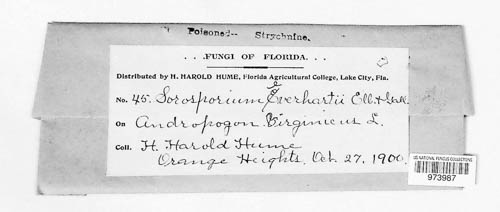 Poisoned-- Strychnine.
. . .FUNGI OF FLORIDA. . .
Distributed by H. HAROLD HUME, Florida Agricultural College, Lake City, Fla.
No. 45. Sorosporium Everhartii Ell. & Gall.
On Andropogon Virginicus L.
Coll. H. Harold Hume
Orange Heights, Oct. 27, 1900.
US NATIONAL FUNGUS COLLECTIONS
973987